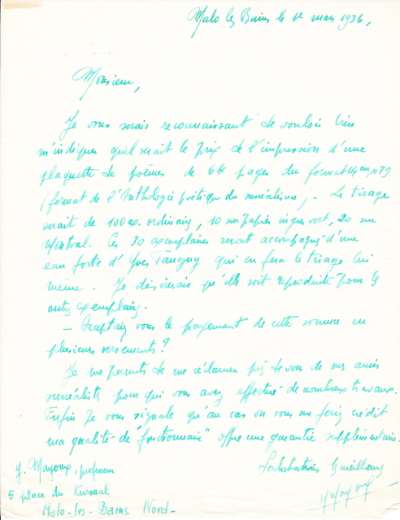 Malo les Bains le 1er mars 1936,
Monsieur,
Je vous serais reconnaissant de vouloir bien
m'indiquer quel serait le prix de l'impression d'une
plaquette de poèmes de 64 pages du format
(format de l'Anthologie poétique du surréalisme). - Le tirage
serait de 100 ex. ordinaires, 10 sur papier vert, 20 sur
Ces 30 exemplaires sont accompagnés d'une
eau forte d'Yves Tanguy qui en fera le tirage lui
même. Je désirerais qu'elle soit reproduite pour les
autres exemplaires.
- Acceptez vous le payement de cette somme en
plusieurs versements ?
Je me permets de me réclamer près de vous de vos amis
surréalistes pour qui vous avez effectué de nombreux travaux.
Enfin je vous signale qu'au cas où vous me feriez crédit
ma qualité de "fonctionnaire" offre une garantie supplémentaire.
Salutations
J. Mayoux, professeur
5 place du Kursaal
Malo-les-Bains Nord-